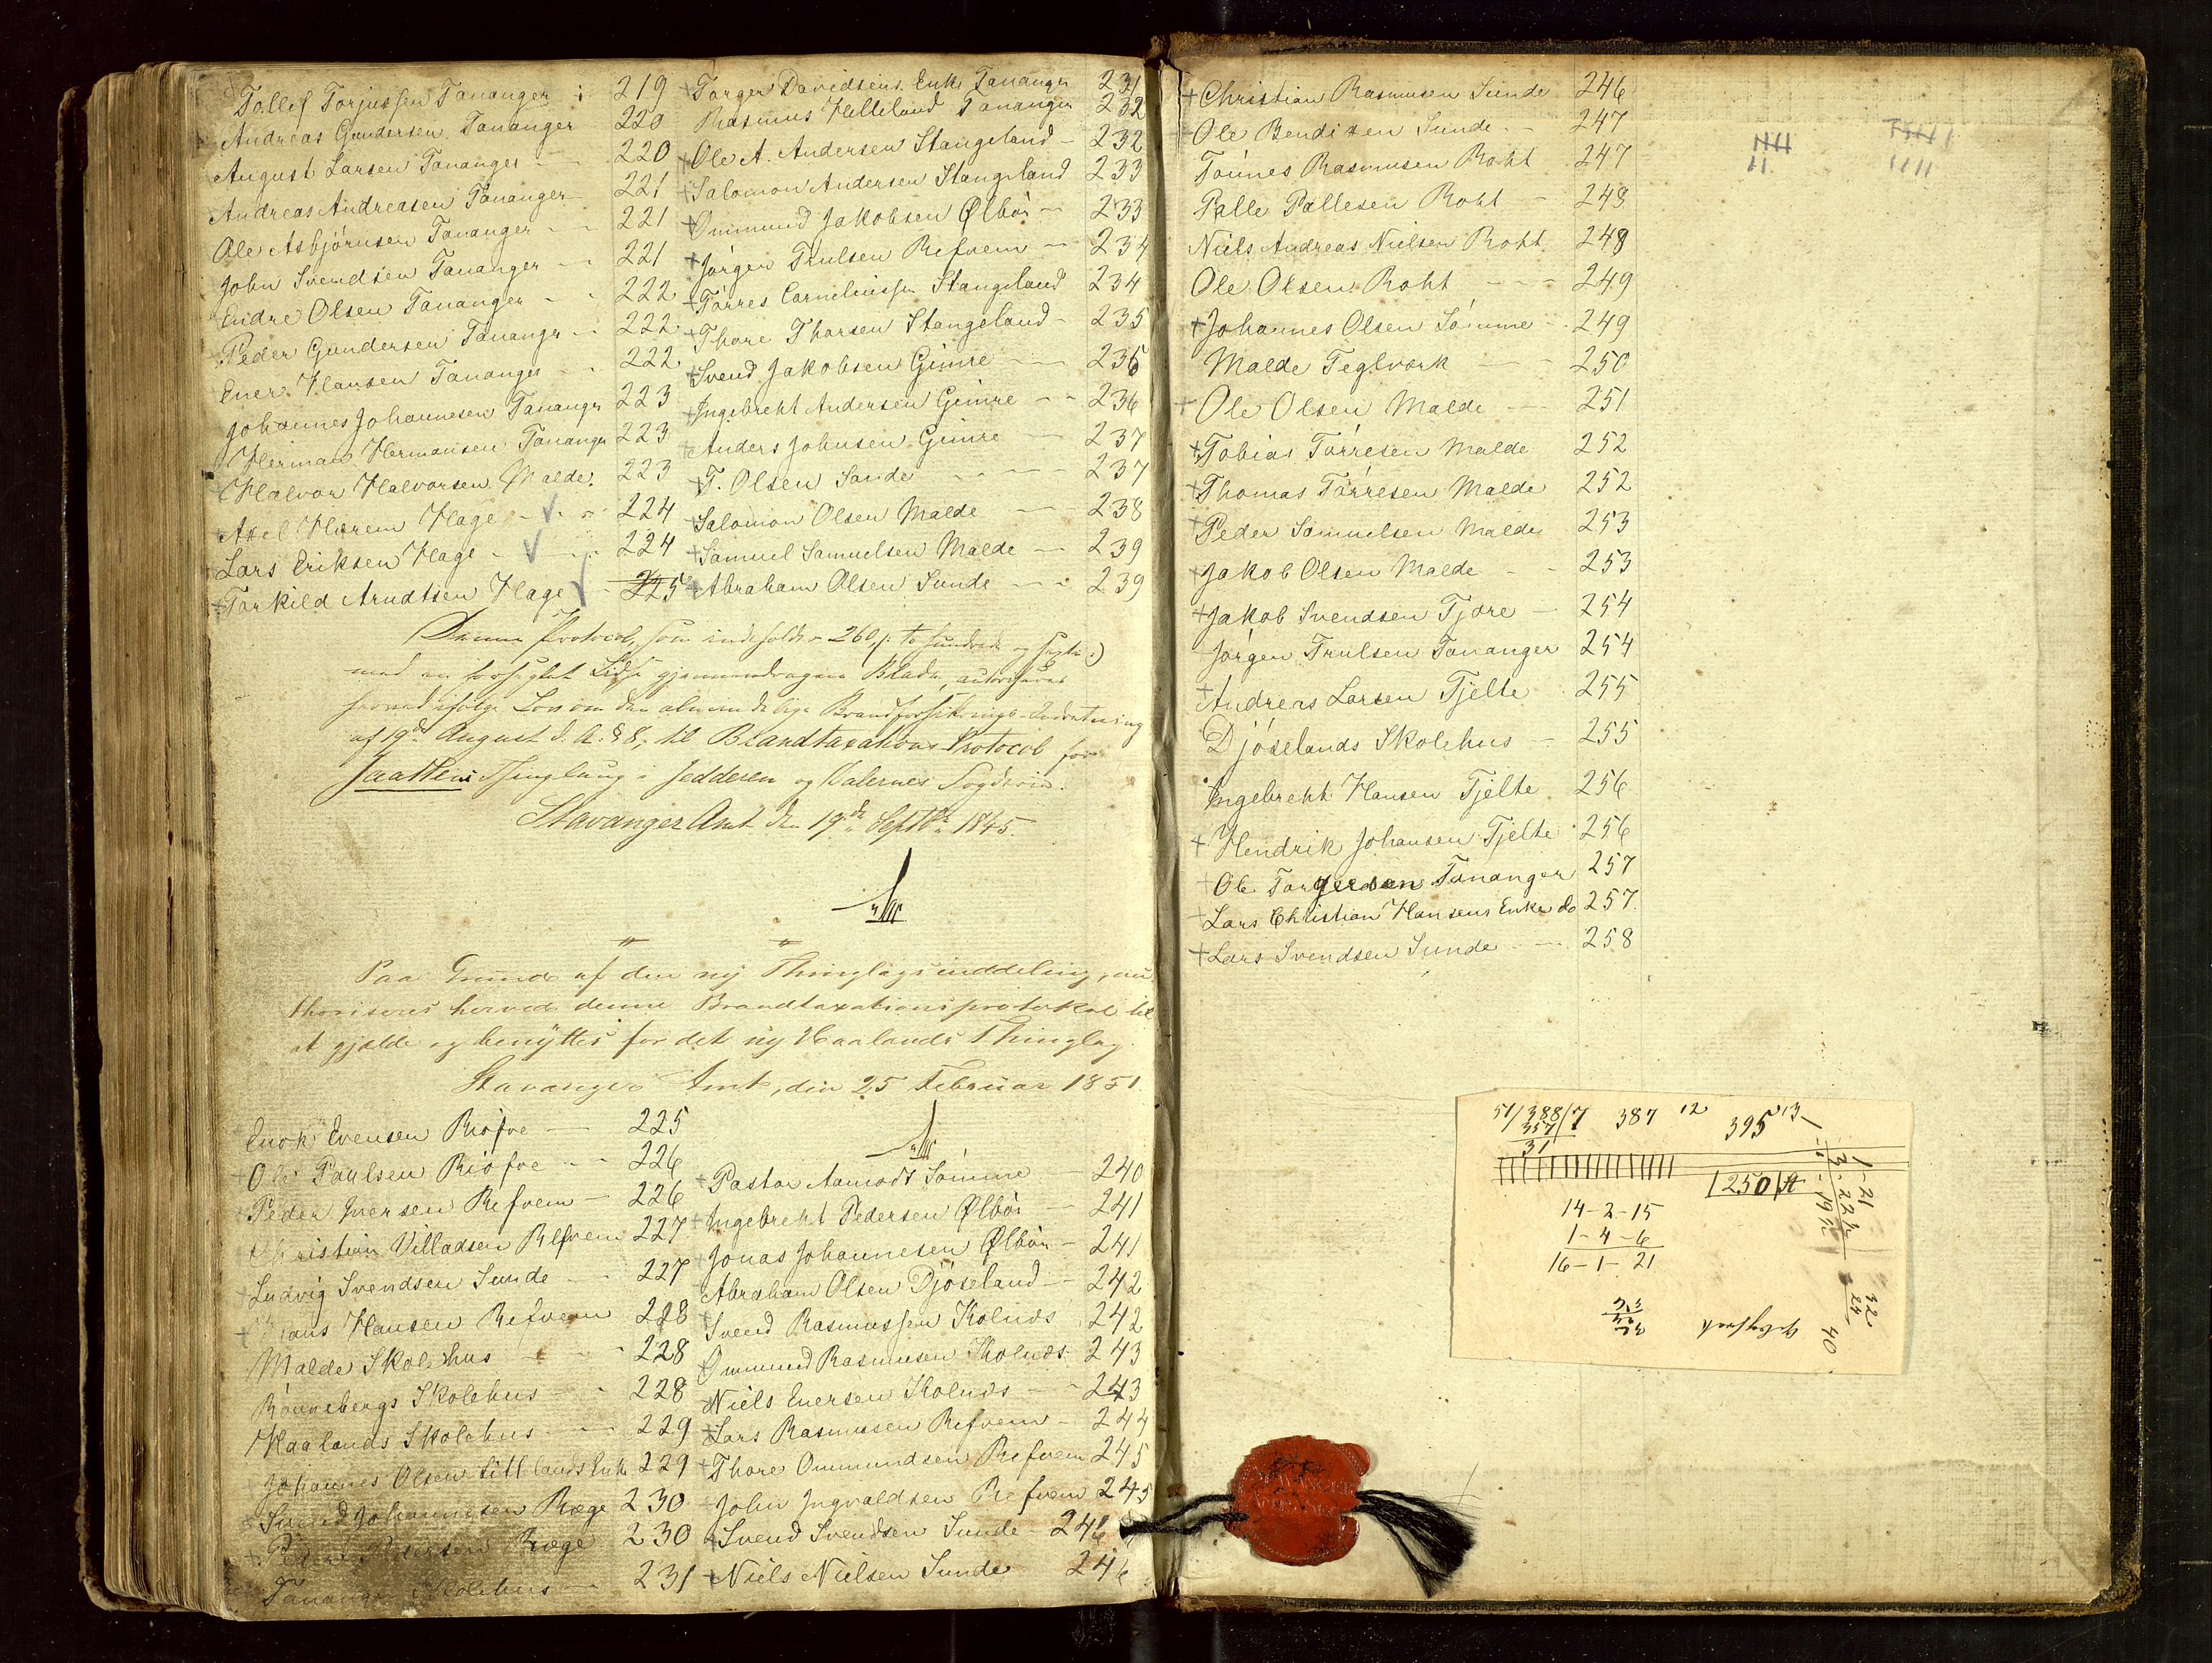 Tollef Torjussen Tananger 219
Andreas Gundersen Tananger 220
August Larsen Tananger 220
Andreas Andreasen Tananger 221
Ole Asbjörnsen Tananger 221
John Svendsen Tananger 221
Endre Olsen Tananger 222
Peder Gundersen Tanangr 222
Ener Hansen Tananger 222
Johannes Johannesen Tanangr 223
Herman Hermansen Tananger 223
Halvor Halvorsen Malde 223
Axel Hærem Hage 224
Lars Eriksen Hage 224
+ Torkild Arndtsen Hage 225
+ Torger Davidsens Enke Tananger 231
Rasmus Helleland Tananger 232
+ Ole A. Andersen Stangeland 232
+ Salomon Andersen Stangeland 233
+ Ommund Jakobsen Ølbör 233
+ Jörgen Trulsen Refvem 234
+ Törres Corneliussen Stangeland 234
+ Thore Thorsen Stangeland 235
+ Svend Jakobsen Gimre 236
+ Ingebreht Andersen Gimre 236
+ Anders Johnsen Gimre 237
+ T. Olsen Sande 237
+ Salomon Olsen Malde 238
+ Samuel Samuelsen Malde 239
+ Abraham Olsen Sunde 239
Denne Protocol, som indeholder 260 /: to hundrede og sexti :/
med en forseglet Lidse gjennemdragne Blade, autoriseres
herved ifølge Lov om den almindelige Brandforsikrings-Indretning
af 19de August d. A. § 8, til Brandtaxations-Protocol for
Jaattens Thinglaug i Jedderen og Dalernes Fogderie.
Stavanger Amt den 19de Septbr 1845.
Paa Grund af den ny Thinglagsinddeling, au-
thoriseres herved denne Brandtaxationsprotokol til
at gjælde og benyttes for det ny Haalands Thinglag.
Stavanger Amt, den 25 Februar 1851.
Enok Evensen Riöfve 225
+ Ole Paulsen Riöfve 226
+ Peder Iversen Refvem 226
+ Christian Villadsen Refvem 227
+ Ludvig Svendsen Sunde 227
+ Hans Hansen Refvem 228
Malde Skolehus 228
Rönnebergs Skolehus 228
Haalands Skolehus 229
Johannes Olsen Litlelands Enke 229
+ Svend Johannesen Ræge 230
+ Peder Pedersen Ræge 230
Tananger Skolehus 231
+ Pastor Aamodt Sömme 240
+ Ingebreht Pedersen Ølbör 241
+ Jonas Johannesen Ølbör 241
Abraham Olsen Djöseland 242
+ Svend Rasmussen Kolnæs 242
Ommund Rasmusen Kolnæs 243
Niels Enersen Kolnæs 243
+ Lars Rasmussen Refvem 244
+ Thore Ommundsen Refvem 245
John Ingvaldsen Refvem 245
+ Svend Svendsen Sunde 246
+ Niels Nielsen Sunde 246
+ Christian Rasmusen Sunde 246
+ Ole Bendixen Sunde 247
Tönnes Rasmusen Roht 247
Palle Pallesen Roht 248
Niels Andreas Nielsen Roht 248
Ole Olsen Roht 249
+ Johannes Olsen Sömme 249
Malde Teglværk 250
+ Ole Olsen Malde 251
+ Tobias Törresen Malde 252
+ Thomas Törresen Malde 252
+ Peder Samuelsen Malde 253
+ Jakob Olsen Malde 253
+ Jakob Svendsen Tjore 254
Jörgen Trulsen Tananger 254
+ Andreas Larsen Tjelte 255
Djöselands Skolehus 255
Ingebreht Hansen Tjelte 256
+ Hendrik Johansen Tjelte 256
+ Ole Torgersen Tananger 257
+ Lars Christian Hansens Enke do 257
+ Lars Svendsen Sunde 258
51/388/7 387 12 395 13
357
31
250
14-2-15
1-4-6
16-1-21
1-21
40